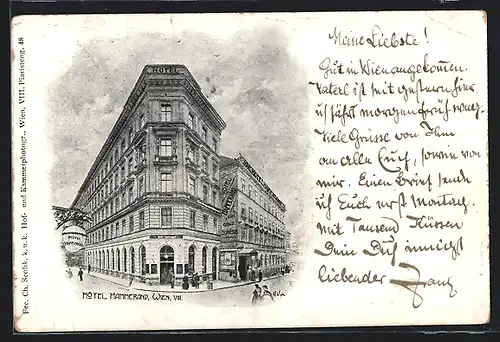 Fec. Ch. Scolik, k. u. k. Hof- und Kammerphotogr., Wien, VIII. Piaristeng. 48
HOTEL
HOTEL
HOTEL HAMMERAND, WIEN, VIII.
Meine Liebste!
Gut in Wien angekommen.
Vaterl ist mit gestern hier
fährt morgen früh
Viele Grüsse von Ihm
an alle Euch, sowie von
mir. Einen Brief sende
ich Euch erst Montag.
Mit Tausend Küssen
Dein Dich innigst
liebender Franz